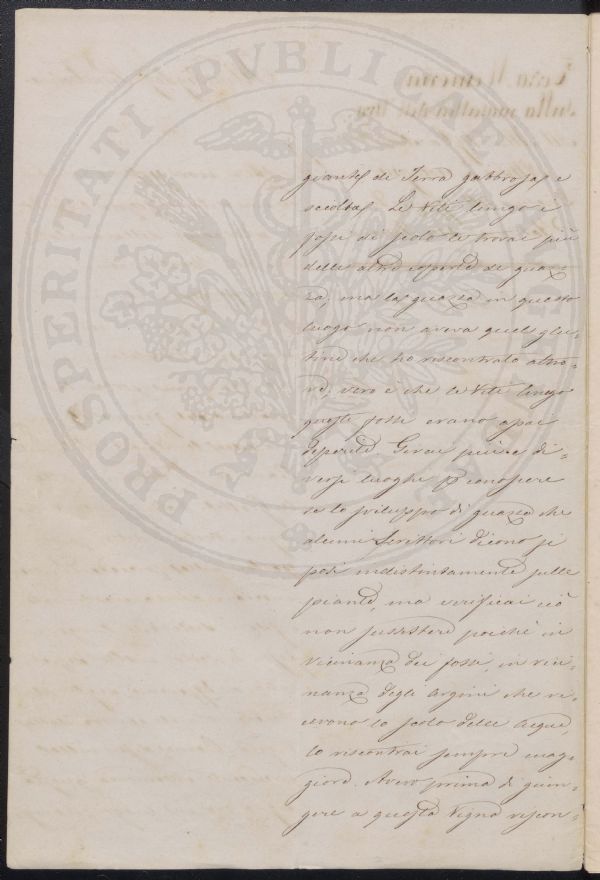 giante di Terra gabbrosa e
sciolta. Le Viti lungo i
fossi di scolo le trovai più
delle altre coperte di guaz-
za, ma la guazza in questo
luogo non aveva quel glu-
tine che ho riscontrato altro-
ve, vero è che le Viti lungo
questi fossi erano assai
deperite. Girai più e di-
versi luoghi p conoscere
se lo sviluppo di guazza che
alcuni scrittori dicono si
posi indistintamente sulle
piante, ma verificai ciò
non sussistere poichè in
vicinanza dei fossi, in vici-
nanza degli argini che ri-
cevono lo scolo delle acque,
lo riscontrai sempre mag-
giore. Avevo prima di giun-
gere a questa Vigna riscon-
PROSPERITATI PVBLICAE AVGENDAE